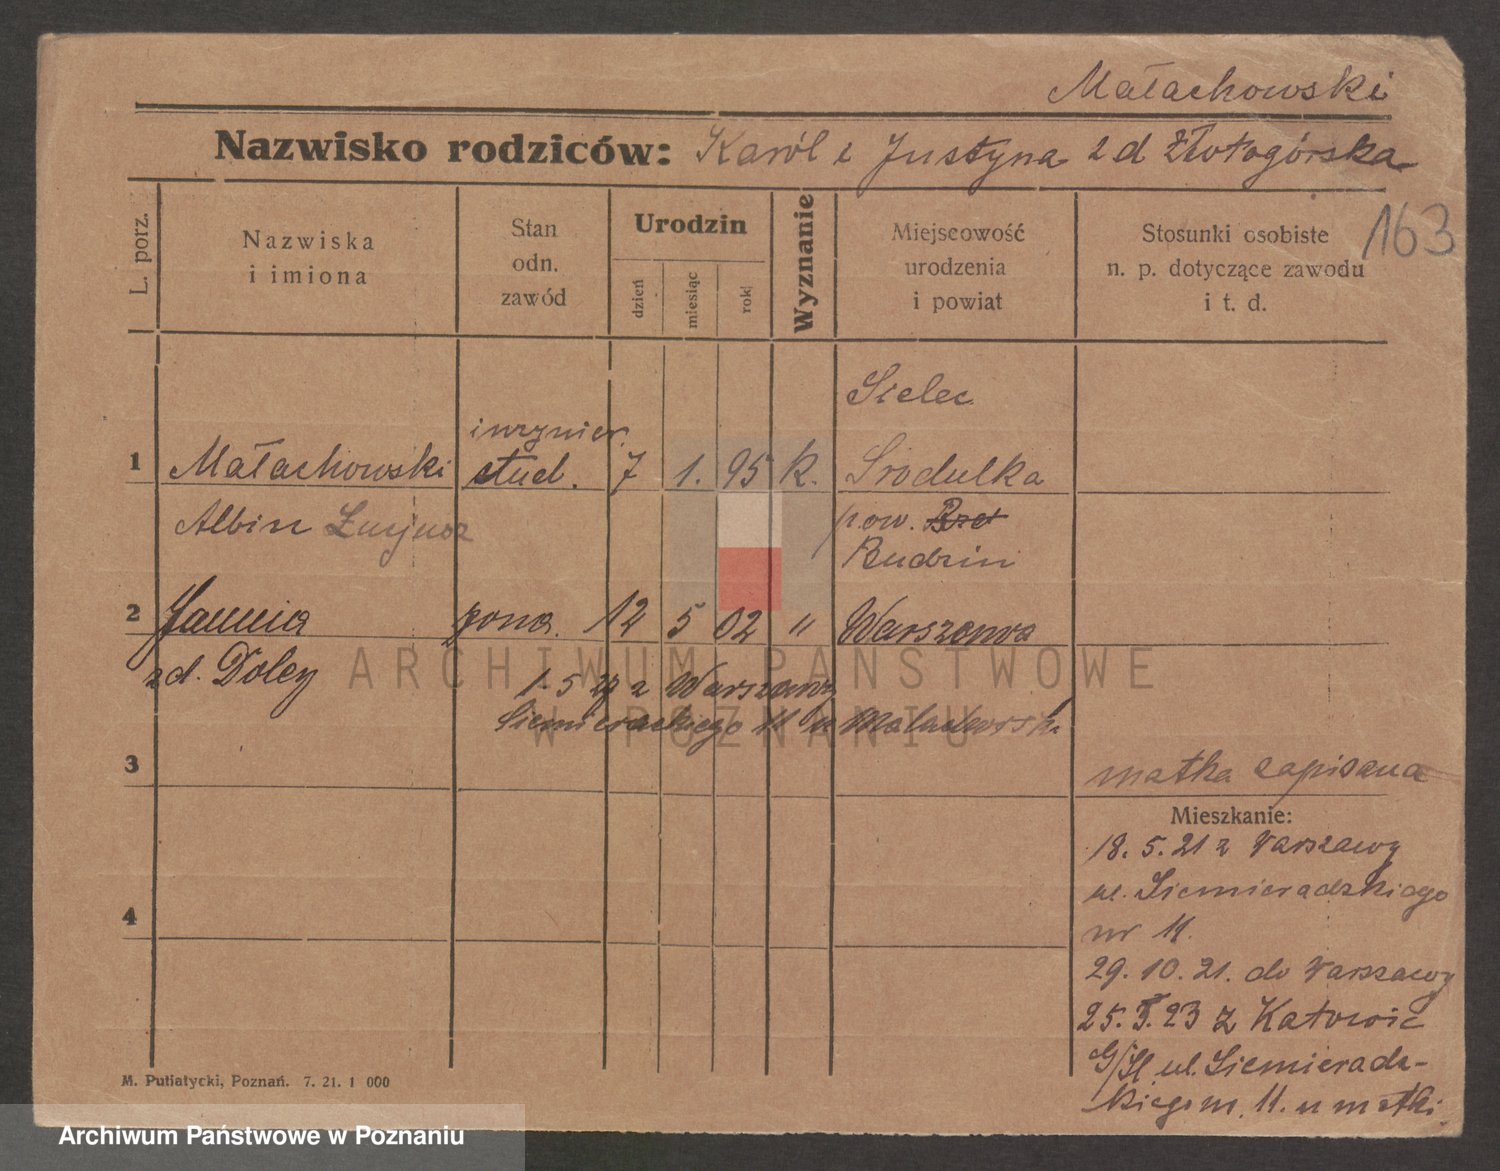 Małachowski
Nazwisko rodziców: Karól i Justyna z d Złotogórska
163
L. porz.
Nazwiska
i imiona
Stan
odn.
zawód
Urodzin
dzień
miesiąc
rok
Wyznanie
Miejscowość
urodzenia
i powiat
Stosunki osobiste
n. p. dotyczące zawodu
i t. d.
Sielec
inżynier.
1 Małachowski stud. 7 1. 95 k. Srodulka
Albin Lucjusz pow.
Budzin
2 Janina żona. 12 5 02 " Warszawa
zd. Doley
1. 5 z Warszawy
Siemieradzkiego 11 u
3
matka zapisana
Mieszkanie:
18. 5. 21 z Warszawy
ul. Siemieradzkiego
nr 11.
4
29. 10. 21. do Warszawy
25. 5. 23 z Katowic
G/Śl. ul. Siemieradz-
kiego 11. u matki
M. Putiatycki, Poznań. 7. 21. 1 000
ARCHIWUM PAŃSTWOWE
W POZNANIU
Archiwum Państwowe w Poznaniu